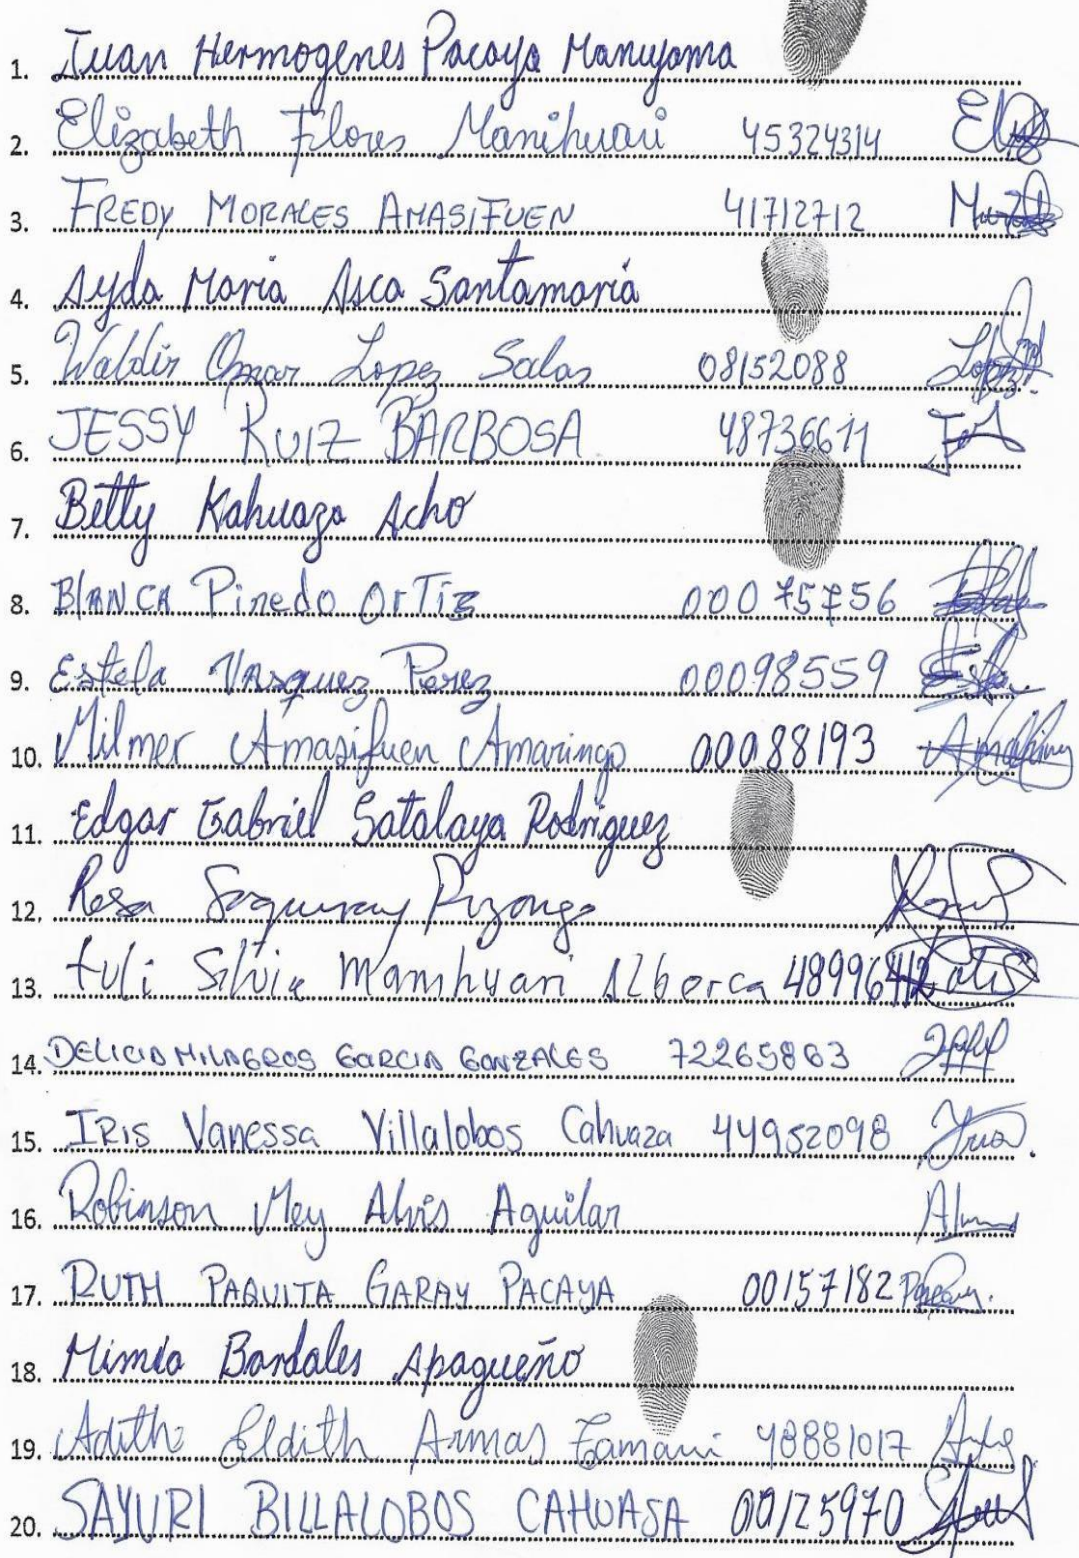 1. Juan Hermogenes Pacaya Manuyama
2. Elizabeth Flores Manihuari 45324314
3. FREDY MORALES AMASIFUEN 41712712
4. Ayda Maria Asca Santamaría
5. Waldir Omar Lopez Salas 08152088
6. JESSY RUIZ BARBOSA 48736611
7. Betty Kahuaza Acho
8. BLANCA Pinedo OrTiz 00075756
9. Estela Vasquez Perez 00098559
10. Milmer Amasifuen Amaringo 00088193
11. Edgar Gabriel Satalaya Rodriguez
12. Rosa
13. Silvia Manihuari 48996412
14. DELICIA MILAGROS GARCIA GONZALES 72265863
15. IRIS Vanessa Villalobos Cahuaza 44952098
16. Robinson Mey Alvis Aguilar
17. RUTH PAQUITA GARAY PACAYA 00157182
18. Bardales Apagueño
19. Eldith Armas 48881017
20. SAYURI BILLALOBOS CAHUASA 00125970